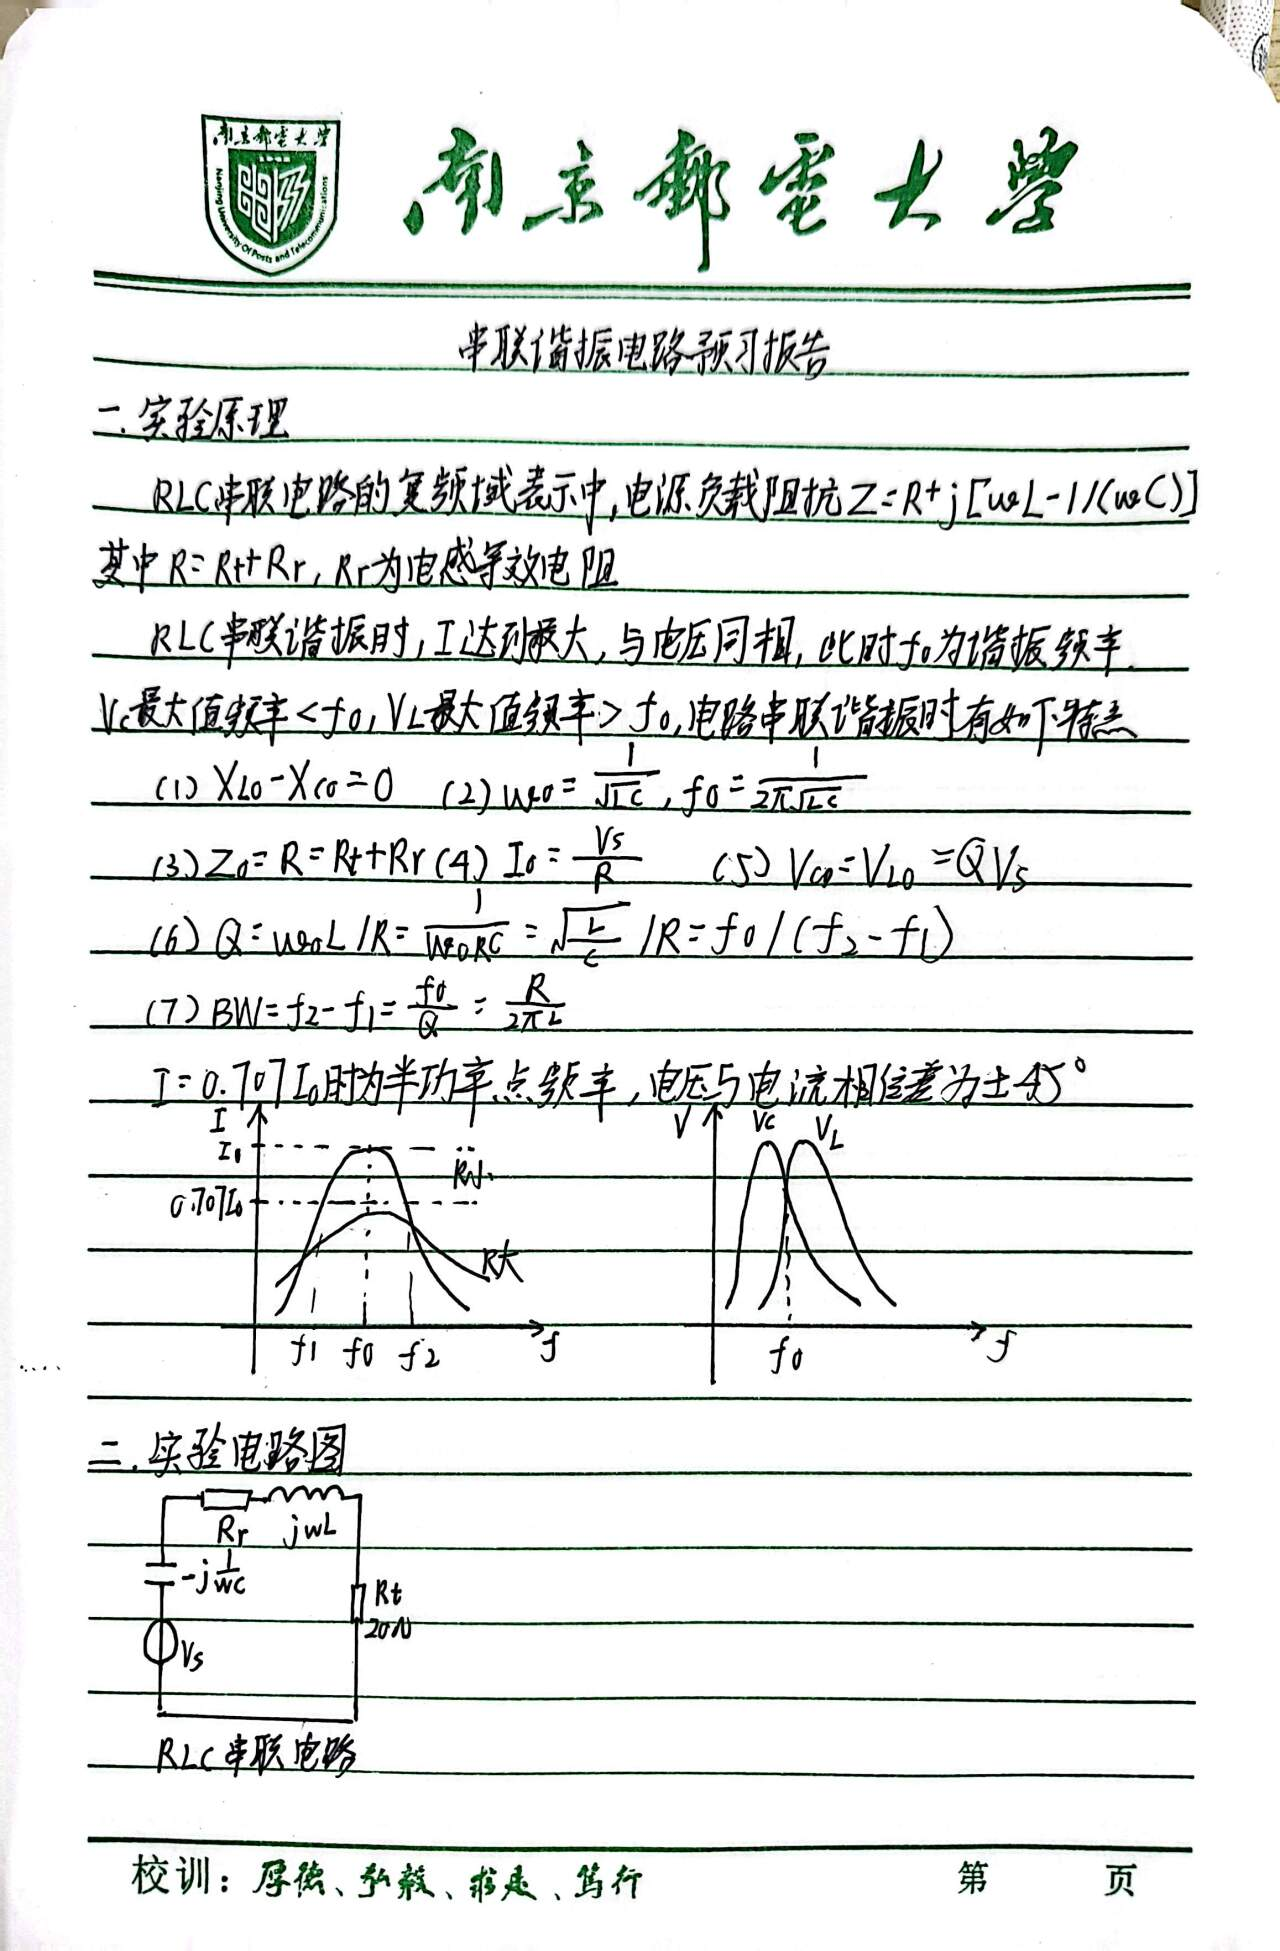 南京邮电大学
Nanjing University Of Posts and Telecommunications
南京郵電大學
串联谐振电路预习报告
一.实验原理
RLC串联电路的复频域表示中,电源负载阻抗Z=R+j[ωL-1/(ωC)]
其中R=Rt+Rr,Rr为电感等效电阻
RLC串联谐振时,I达到最大,与电压同相,此时f0为谐振频率.
Vc最大值频率<f0,VL最大值频率>f0,电路串联谐振时有如下特点
(1) XL0-XC0=0 (2) ω0=1/√LC, f0=1/2π√LC
(3) Z0=R=Rt+Rr (4) I0=Vs/R (5) VC0=VL0=QVs
(6) Q=ω0L/R=1/ω0RC=√(L/C)/R=f0/(f2-f1)
(7) BW=f2-f1=f0/Q=R/2πL
I=0.707I0时为半功率点频率,电压与电流相位差为±45°
I V Vc VL
I0
R小
0.707I0
R大
f1 f0 f2 f f0 f
二.实验电路图
Rr jwL
-j1/wC
Rt
20Ω
Vs
RLC串联电路
校训：厚德、弘毅、求是、笃行 第 页